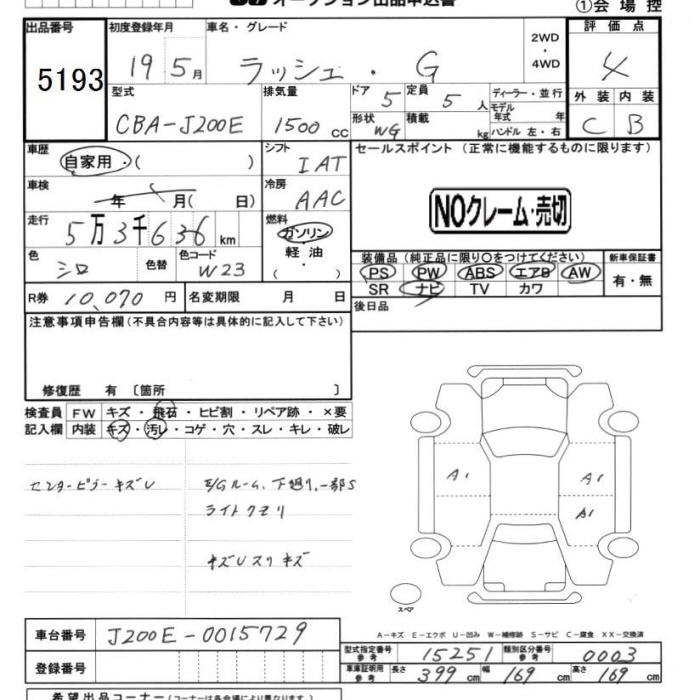 オークション出品申込書
①会場控
出品番号 初度登録年月 車名・グレード 2WD・4WD 評価点
5193 19年5月 ラッシュ・G 4
型式 排気量 ドア 5 定員 5人 ディーラー・並行 外装 内装
モデル年式 年
CBA-J200E 1500cc 形状 WG 積載 kg ハンドル 左・右 C B
車歴 自家用・( ) シフト IAT セールスポイント (正常に機能するものに限ります)
車検 年 月( 日) 冷房 AAC
NOクレーム・売切
走行 5万3千636km 燃料 ガソリン
軽油
( )
色 シロ 色替 色コード W23
装備品 (純正品に限り○をつけてください) 新車保証書
PS PW ABS エアB AW 有・無
SR ナビ TV カワ
R券 10,070円 名変期限 月 日 後日品
注意事項申告欄 (不具合内容等は具体的に記入して下さい)
修復歴 有 〔箇所 〕
検査員 FW キズ・飛石・ヒビ割・リペア跡・×要
記入欄 内装 キズ・汚レ・コゲ・穴・スレ・キレ・破レ
センターピラーキズU E/Gルーム、下廻り、一部S
ライトクモリ
キズUスリキズ
A1 A1
A1
スペア
A-キズ E-エクボ U-凹み W-補修跡 S-サビ C-腐食 XX-交換済
車台番号 J200E-0015729
型式指定番号 参考 15251 類別区分番号 参考 0003
登録番号 車庫証明用 参考 長さ 399cm 幅 169cm 高さ 169cm
希望出品コーナー (コーナーは各会場により異なります)